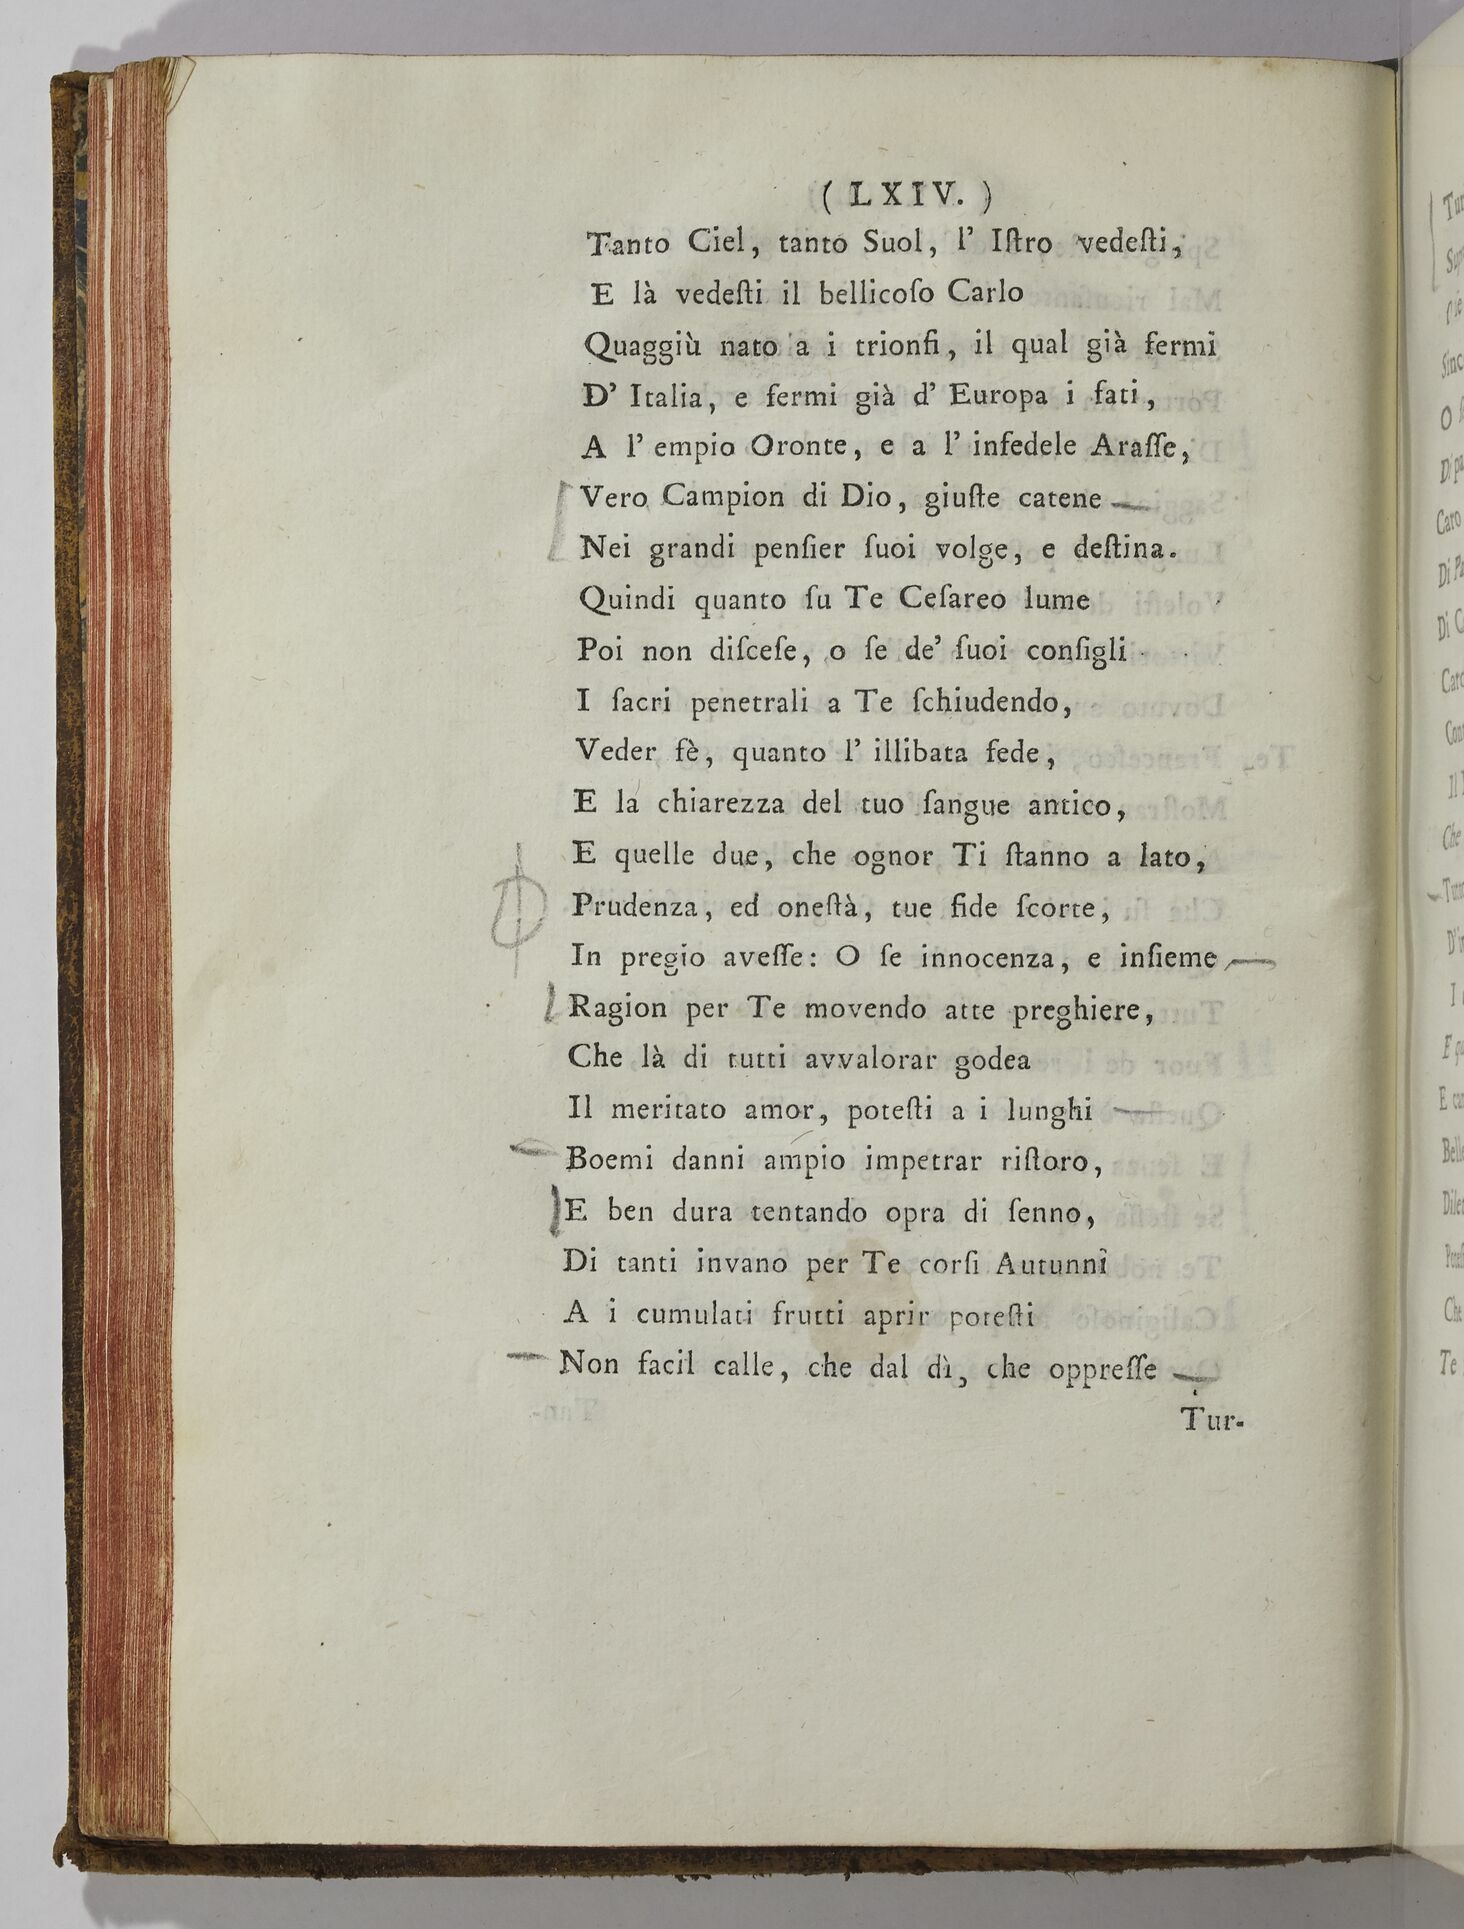 ( LXIV. )
Tanto Ciel, tanto Suol, l' Iſtro vedeſti,
E là vedeſti il bellicoſo Carlo
Quaggiù nato a i trionfi, il qual già fermi
D' Italia, e fermi già d' Europa i fati,
A l' empio Oronte, e a l' infedele Araſſe,
Vero Campion di Dio, giuſte catene
Nei grandi penſier ſuoi volge, e deſtina.
Quindi quanto ſu Te Ceſareo lume
Poi non diſceſe, o ſe de' ſuoi conſigli
I ſacri penetrali a Te ſchiudendo,
Veder fè, quanto l' illibata fede,
E la chiarezza del tuo ſangue antico,
E quelle due, che ognor Ti ſtanno a lato,
Prudenza, ed oneſtà, tue fide ſcorte,
In pregio aveſſe: O ſe innocenza, e inſieme
Ragion per Te movendo atte preghiere,
Che là di tutti avvalorar godea
Il meritato amor, poteſti a i lunghi
Boemi danni ampio impetrar riſtoro,
E ben dura tentando opra di ſenno,
Di tanti invano per Te corſi Autunni
A i cumulati frutti aprir poteſti
Non facil calle, che dal dì, che oppreſſe
Tur-